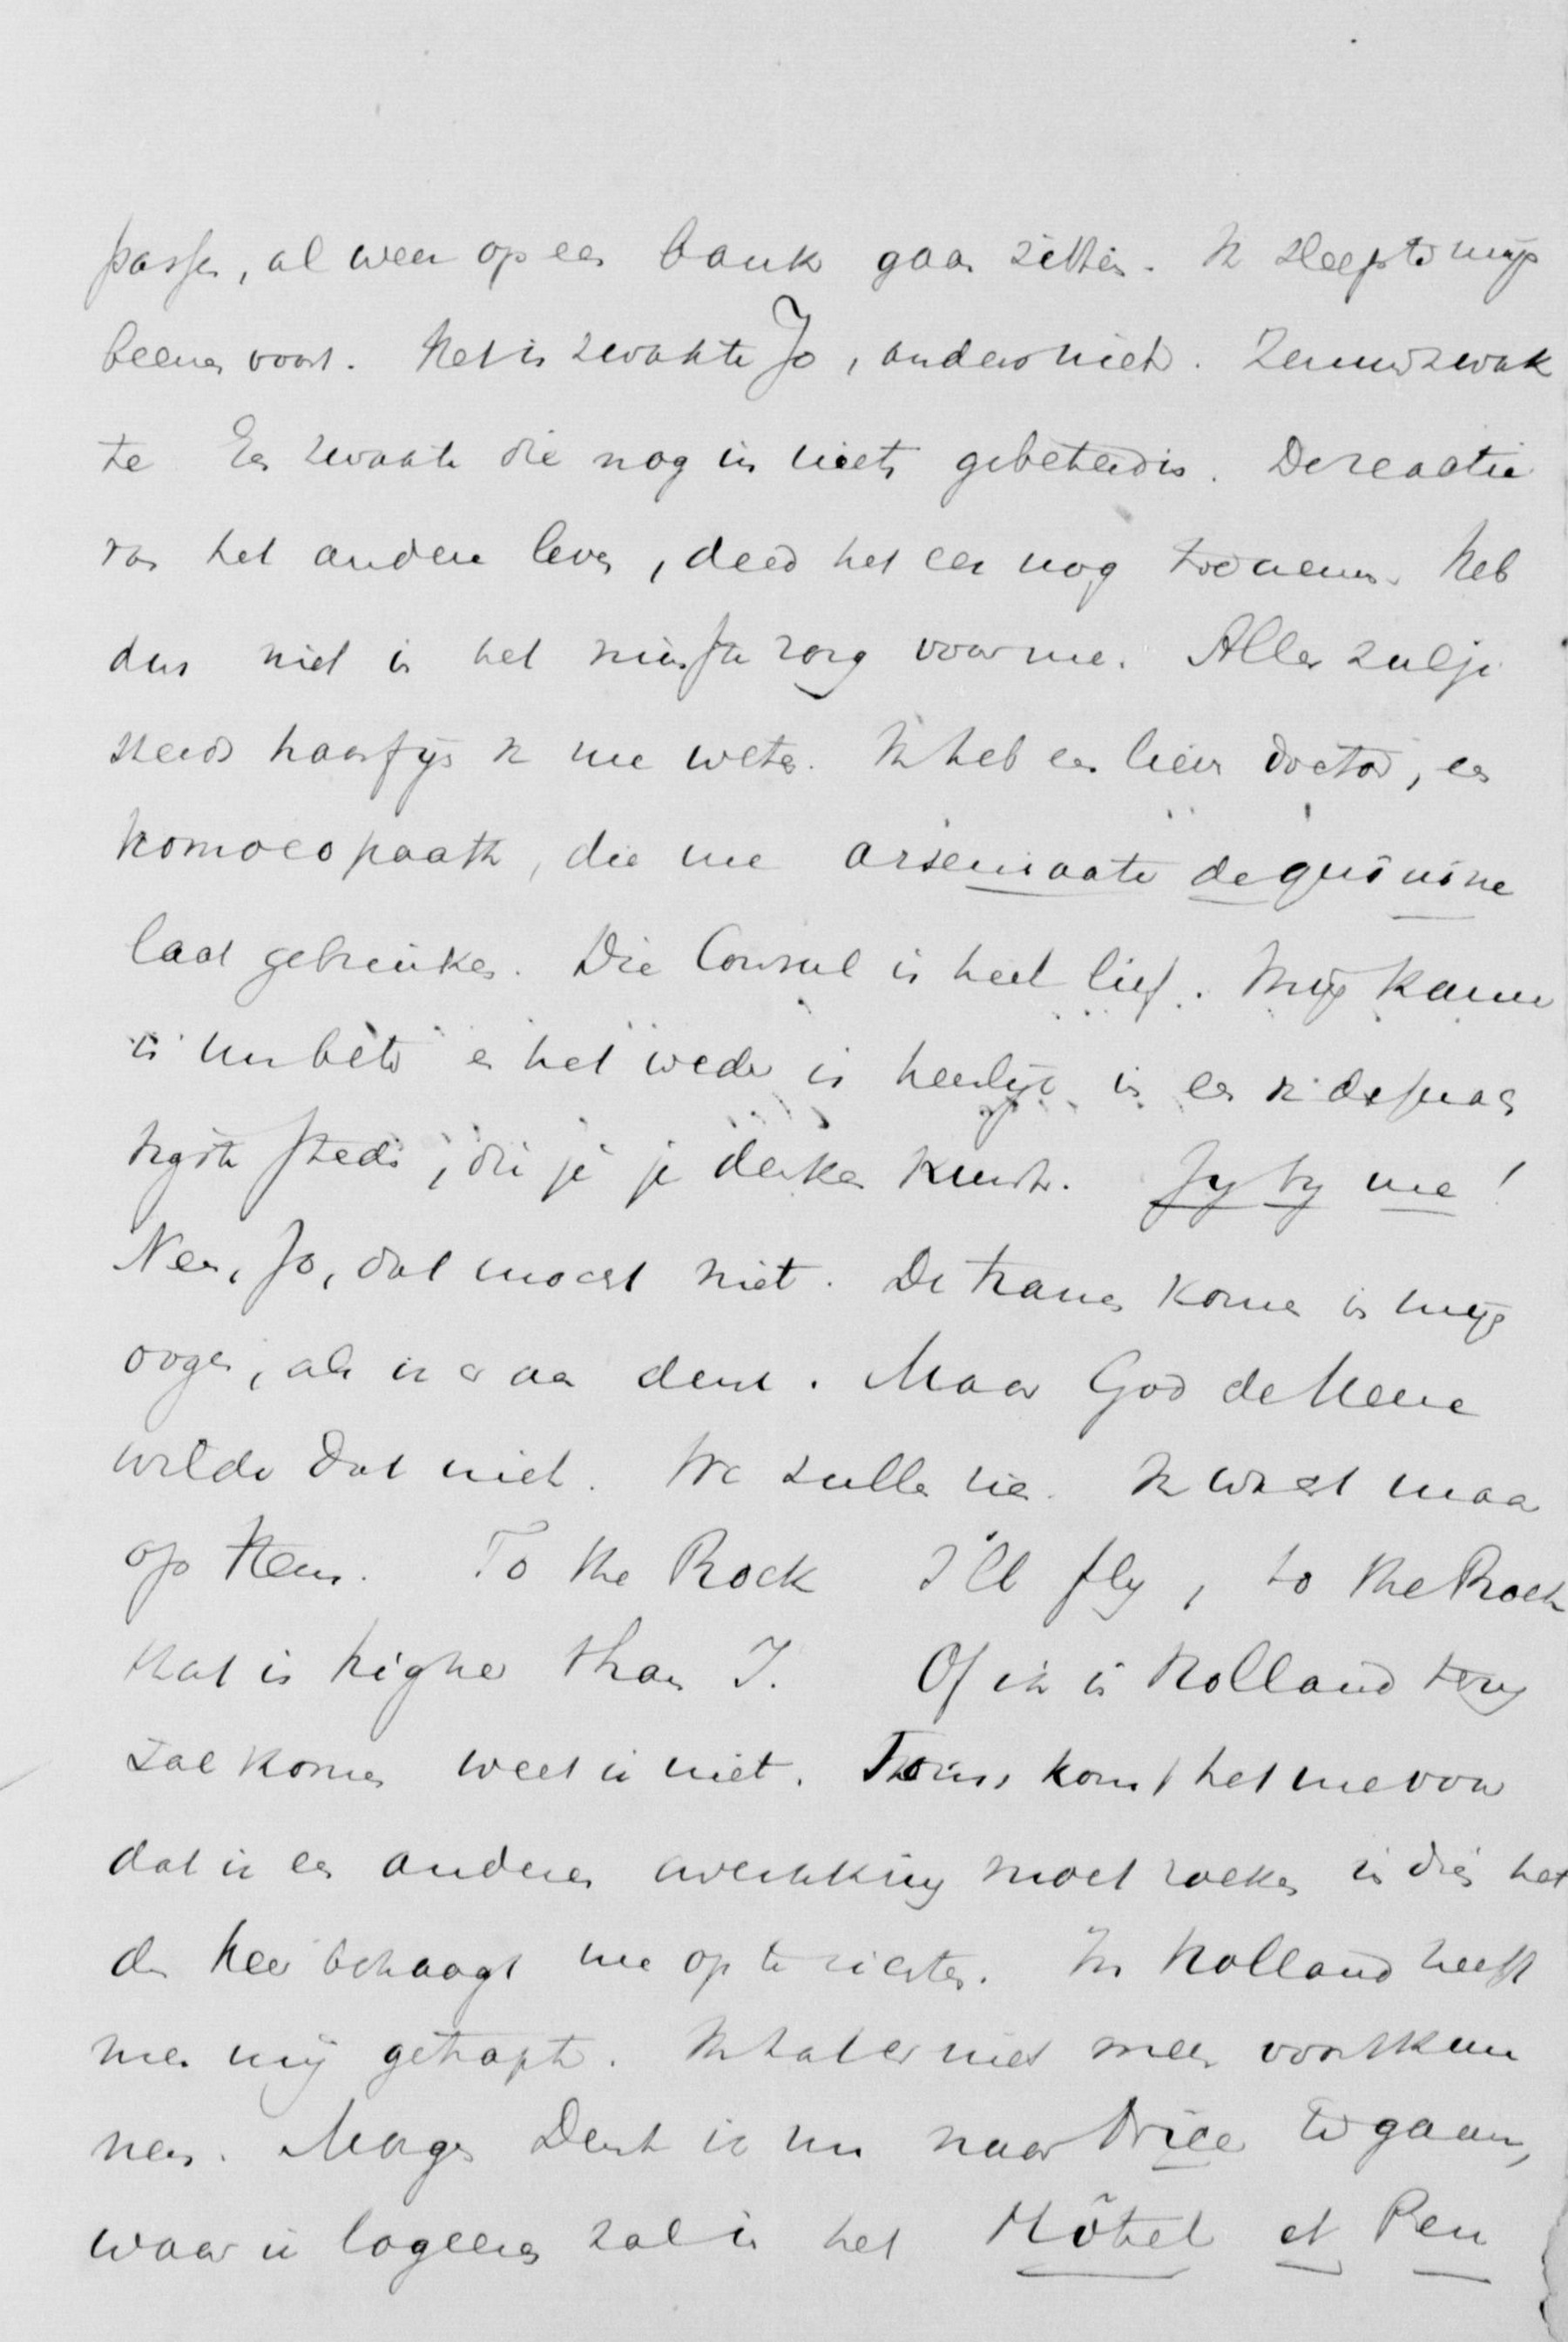 passen, al weer op een bank gaan zitten. Ik sleepte mijn
beenen voort. Het is zwakte Jo, anders niets. Zenuwzwak
te En zwakte die nog in niets gebeterd is. De reactie
van het andere leven, deed het eer nog toenemen. Heb
dus niet in het minste zorg voor me. Alles zul je
steeds haarfijn van me weten. Ik heb een lieven doctor, een
homoeopaath, die me arseniaate de quinine
laat gebruiken. Die Consul is heel lief. Mijn kamer
is nu beter en het weder is heerlijk in een der prach
tigste steden, die je je denken kunt. Jy by me!
Neen, Jo, dat mocht niet. De tranen komen in mijn
oogen, als ik er aan denk. Maar God de Heere
wilde dat niet. We zullen zien. Ik wacht maar
op Hem. To the Rock I'll fly, to the Rock
that is higher than I. Of ik in Holland terug
zal komen weet ik niet. Thans komt het me voor
dat ik een anderen werkkring moet zoeken indien het
den Heer behaagt me op te richten. In Holland heeft
men mij getrapt. Ik had er niet meer voort kun
nen. Morgen denk ik nu naar Nice te gaan,
waar ik logeeren zal in het Hôtel et Pen